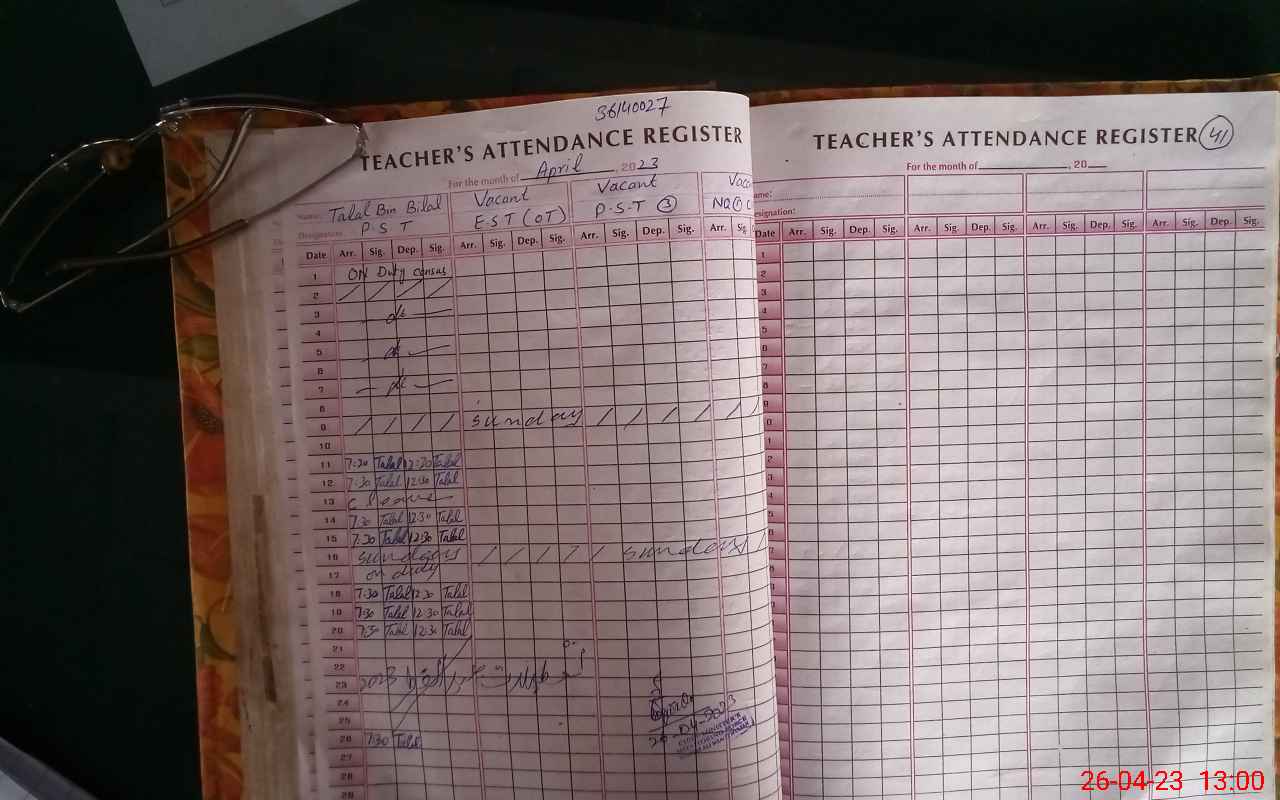 36140027
TEACHER'S ATTENDANCE REGISTER
For the month of April, 2023
Name: Talal Bin Bilal Vacant Vacant
Designation: P.S.T E.S.T (OT) P.S.T (3)
Date Arr. Sig. Dep. Sig. Arr. Sig. Dep. Sig. Arr. Sig. Dep. Sig. Arr. Sig.
1 ON Duty census
2 / / / /
3
4
5
6
7
8
9 / / / / sunday / / / / / /
10
11 7:30 Talal 12:30 Talal
12 7:30 Talal 12:30 Talal
13 C leave
14 7:30 Talal 12:30 Talal
15 7:30 Talal 12:30 Talal
16 sunday / / / / / sunday /
17 on duty
18 7:30 Talal 12:30 Talal
19 7:30 Talal 12:30 Talal
20 7:30 Talal 12:30 Talal
21
22
23 2023
24
25
26 7:30 Talal
27
28
26-04-2023
TEACHER'S ATTENDANCE REGISTER 41
For the month of , 20
Designation:
Date Arr. Sig. Dep. Sig. Arr. Sig. Dep. Sig. Arr. Sig. Dep. Sig. Arr. Sig. Dep. Sig.
1
2
3
4
5
6
7
8
26-04-23 13:00